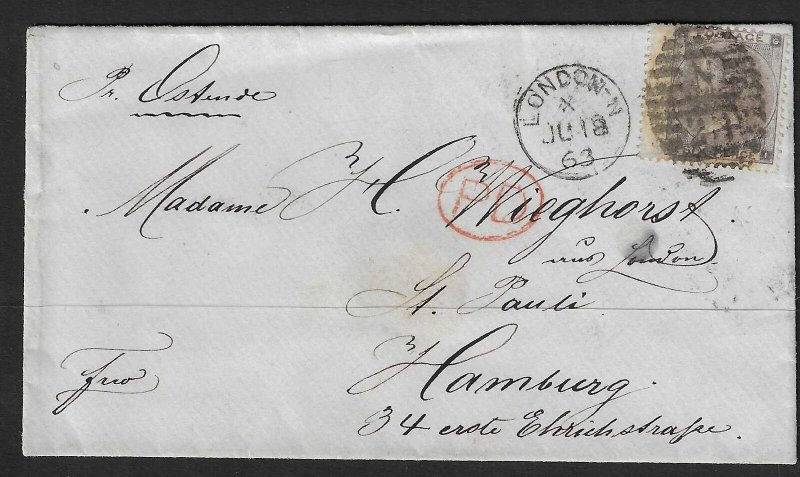 Pr. Ostende
POSTAGE
LONDON-N
X
JU 18
63
PD
Madame H. Wieghorst
aus London
St. Pauli
Hamburg.
34 erste Ehrichstraße.